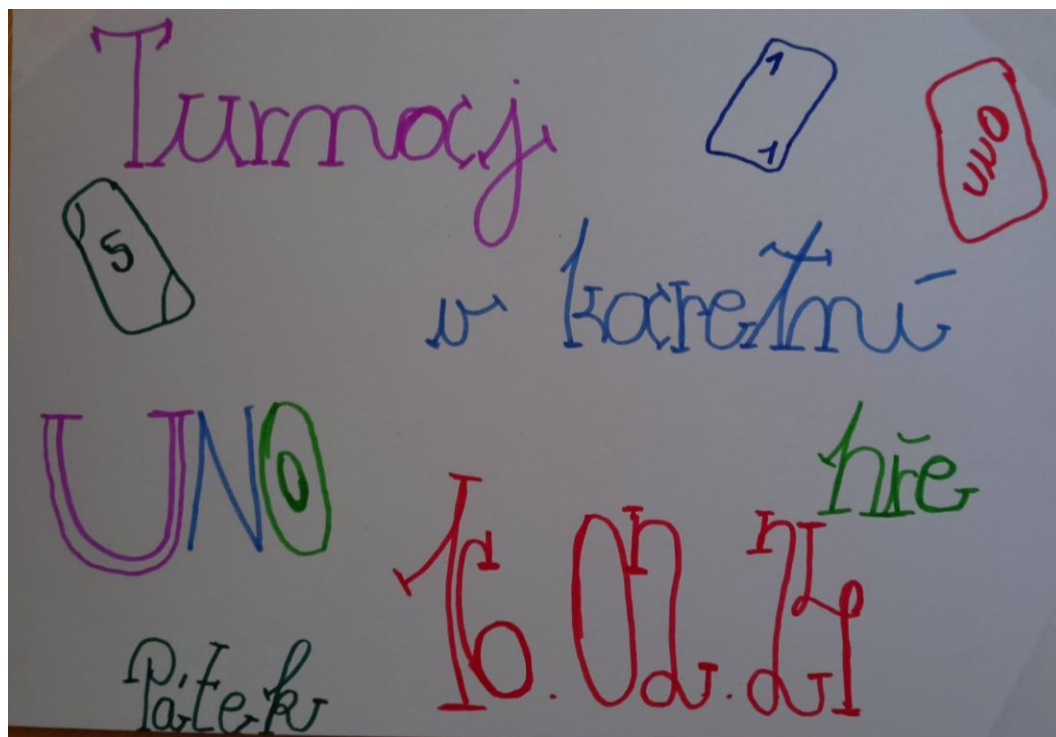 Turnaj
1
1
UNO
5
v karetní
hře
UNO
16.02.24
Pátek